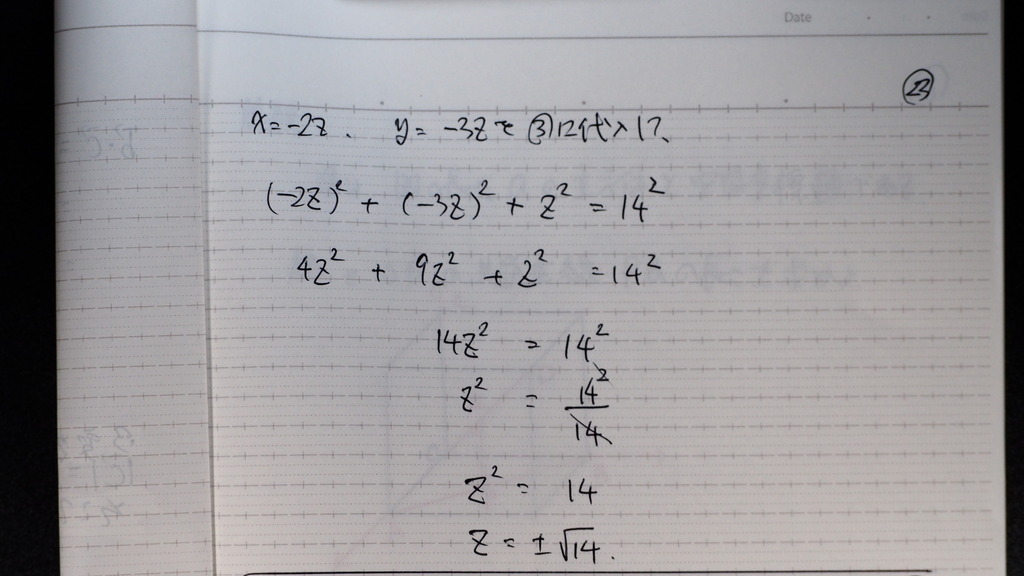 Date
㉓
x=-2z. y=-3zを③に代入して、
(-2z)² + (-3z)² + z² = 14²
4z² + 9z² + z² = 14²
14z² = 14²
z² = 14²/14
z² = 14
z = ±√14.